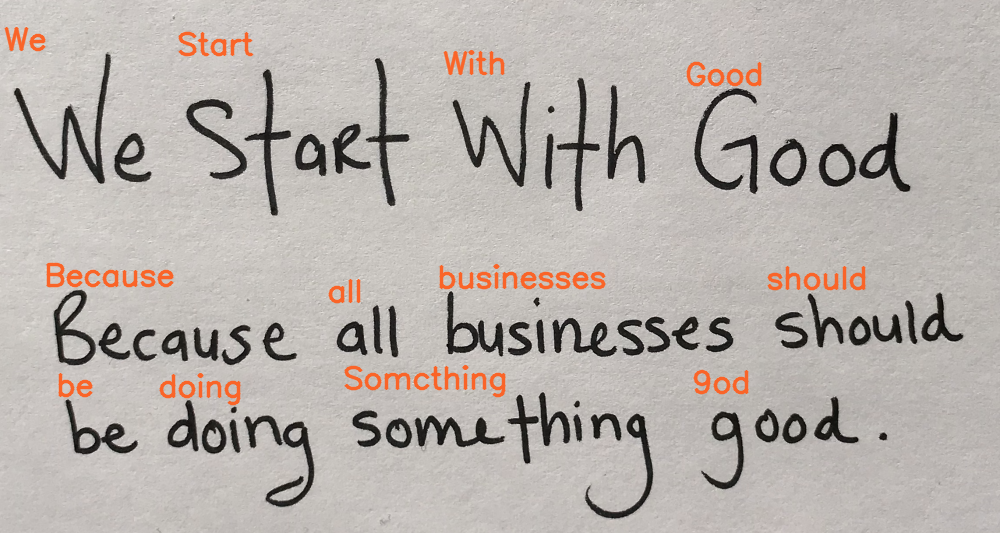 We Start With Good
We Start With Good
Because all businesses should
Because all businesses should
be doing Somcthing 9od
be doing something good.